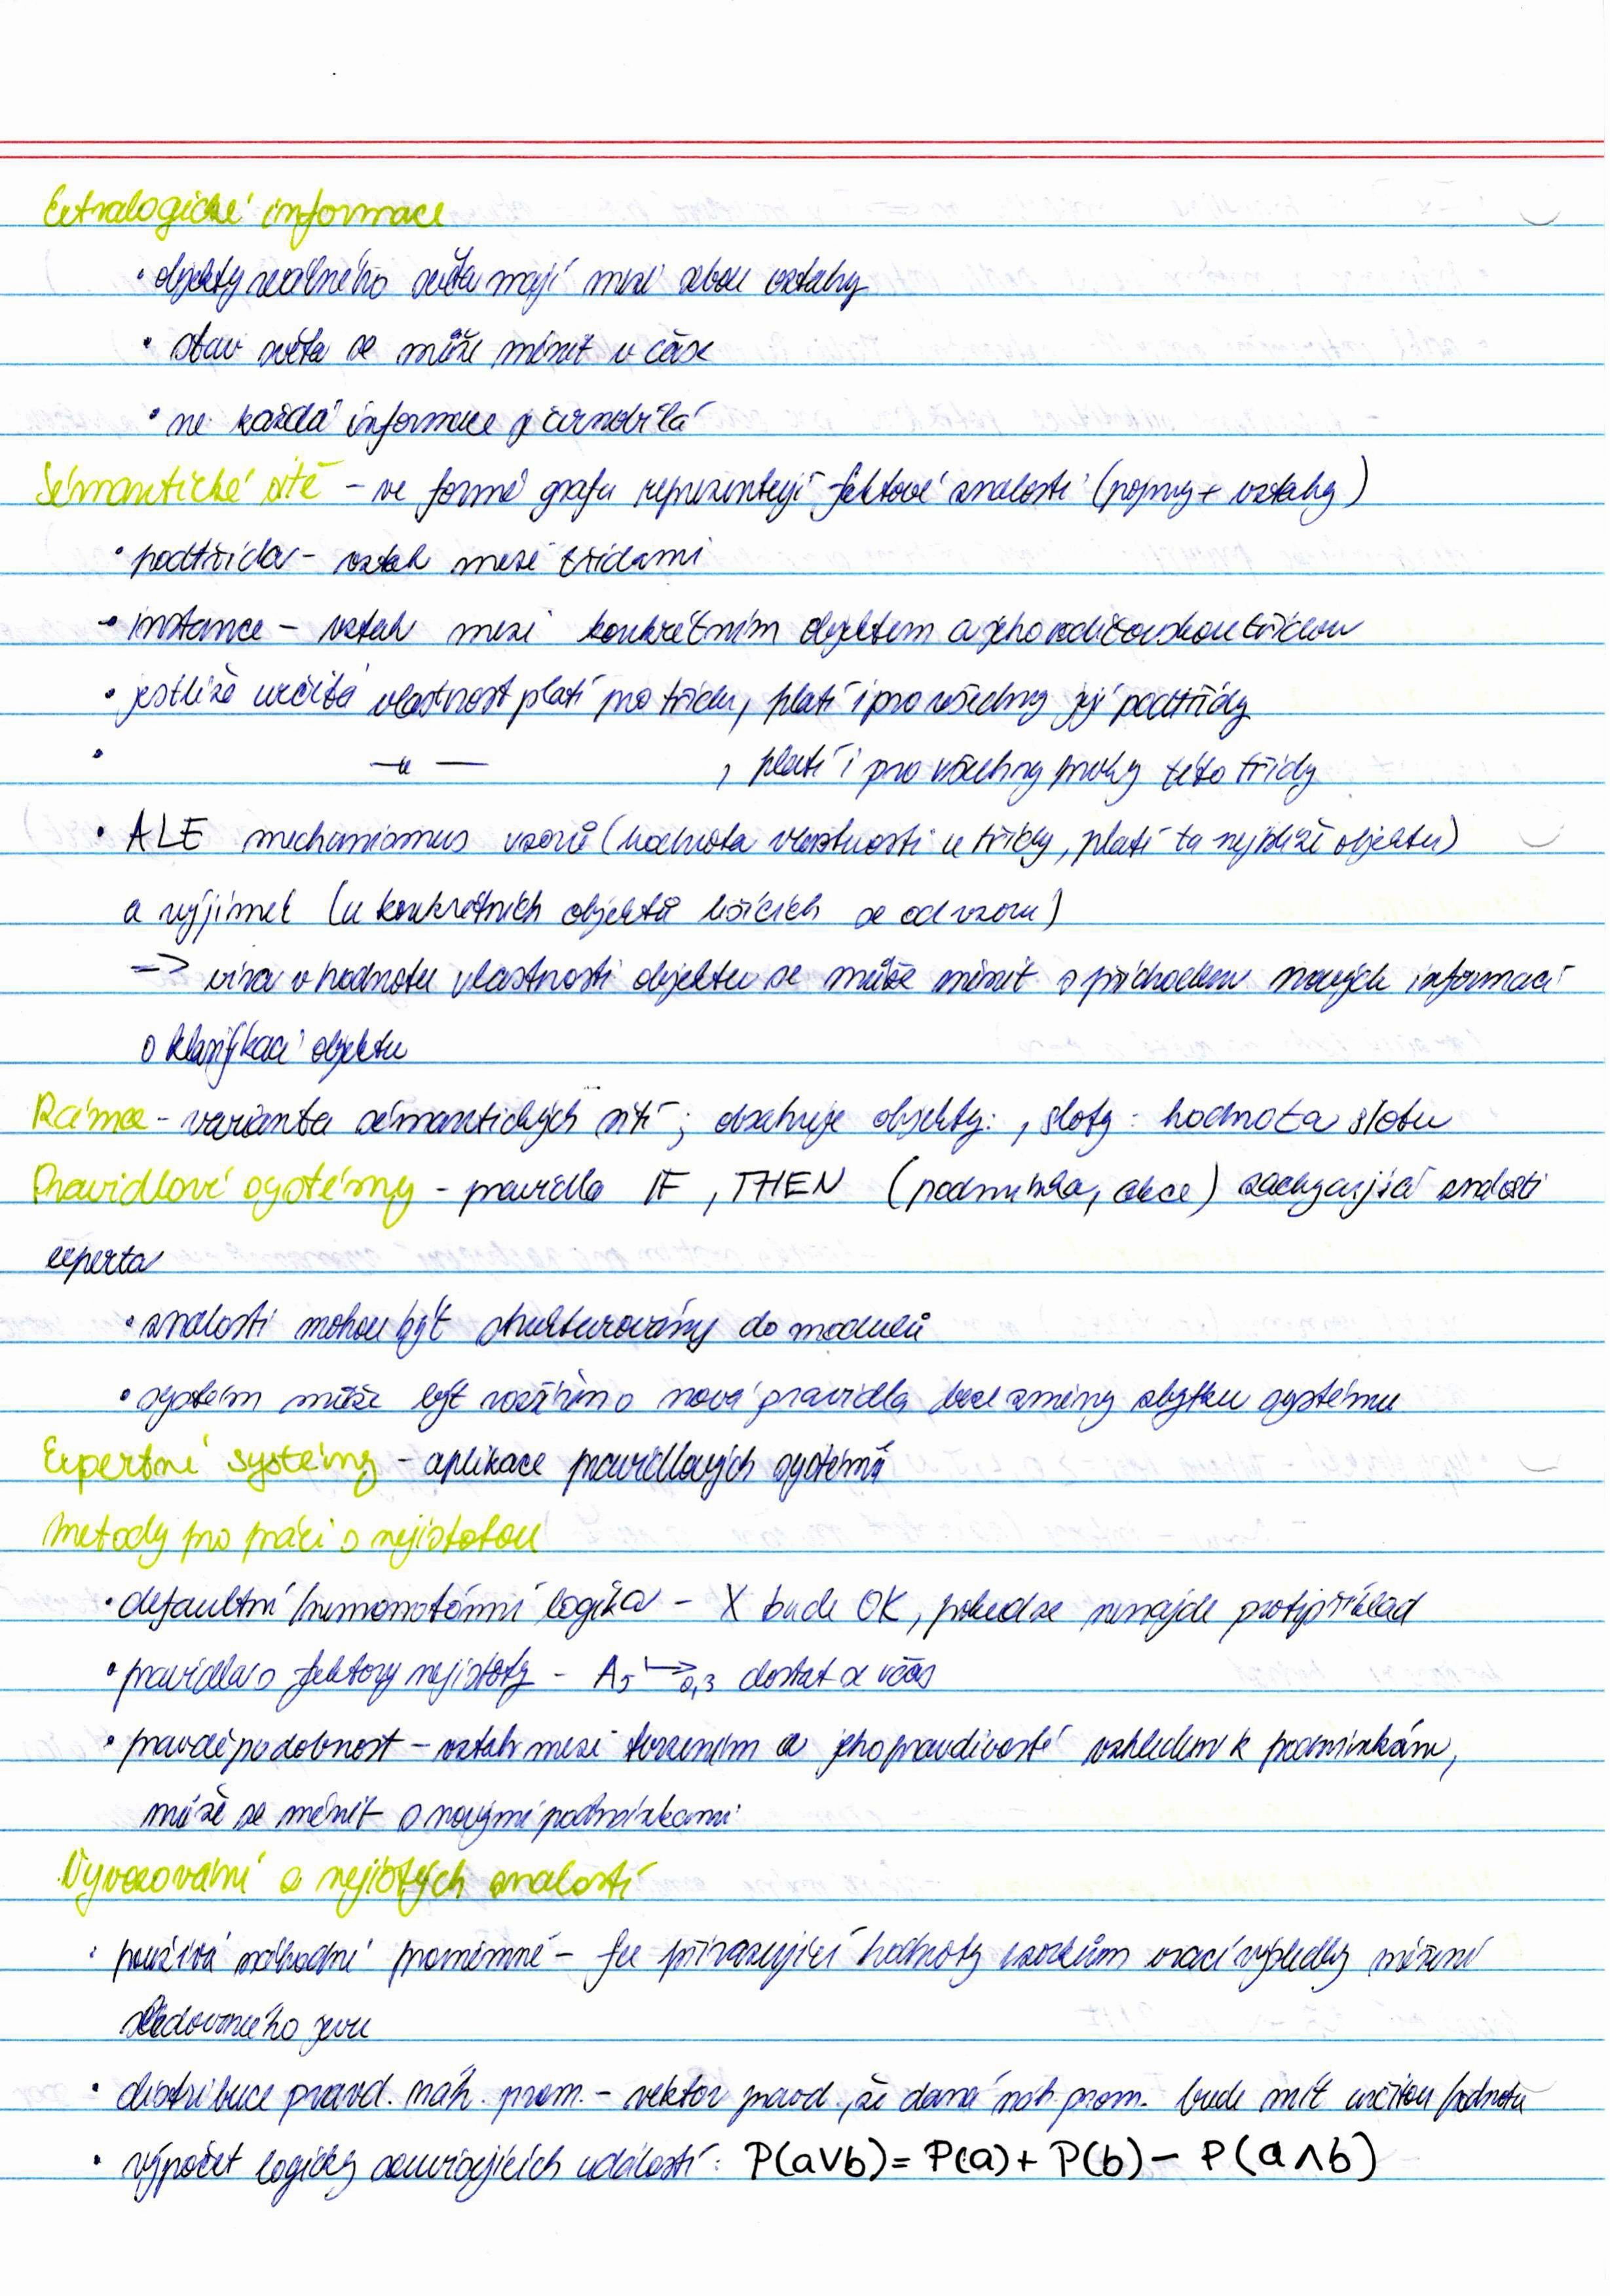 Extralogické informace
• objekty reálného světa mají mezi sebou vztahy
• stav světa se může měnit v čase
• ne každá informace je černobílá
Sémantické sítě - ve formě grafu reprezentují faktové znalosti (pojmy + vztahy)
• podtřída - vztah mezi třídami
• instance - vztah mezi konkrétním objektem a jeho rodičovskou třídou
• jestliže určitá vlastnost platí pro třídu, platí i pro všechny její podtřídy
• —„— , platí i pro všechny prvky této třídy
• ALE mechanismus vzorů (hodnota vlastnosti u třídy, platí ta nejblíže objektu)
a vyjímek (u konkrétních objektů lišících se od vzoru)
=> víra v hodnotu vlastnosti objektu se může měnit s příchodem nových informací
o klasifikaci objektu
Rámce - varianta sémantických sítí; obsahuje objekty: , sloty : hodnota slotu
Pravidlové systémy - pravidla IF , THEN (podmínka, akce) zachycující znalosti
experta
• znalosti mohou být strukturovány do modulů
• systém může být rozšířen o nová pravidla beze změny zbytku systému
Expertní systémy - aplikace pravidlových systémů
Metody pro práci s nejistotou
• defaultní/nemonotónní logika - X bude OK, pokud se nenajde protipříklad
• pravidla s faktory nejistoty - A₅ ↦₀,₃ dostat se včas
• pravděpodobnost - vztah mezi tvrzením a jeho pravdivostí vzhledem k podmínkám,
může se měnit s novými podmínkami
Vyvozování z nejistých znalostí
• používá náhodné proměnné - fce přiřazující hodnoty vzorkům vrací výsledky měření
sledovaného jevu
• distribuce pravd. náh. prom. - vektor pravd., že daná náh. prom. bude mít určitou hodnotu
• výpočet logicky souvisejících událostí: P(a∨b) = P(a) + P(b) - P(a∧b)